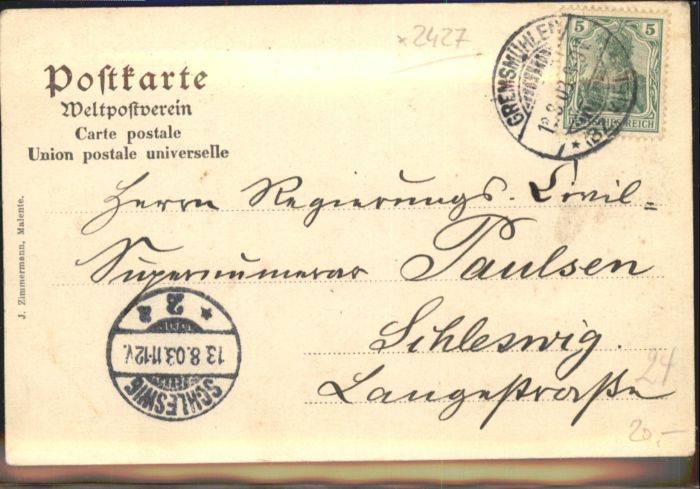 ×2427
Postkarte
Weltpostverein
Carte postale
Union postale universelle
5 5
DEUTSCHES REICH
GREMSMÜHLEN
12.8.03
Herrn Regierungs-Civil=
Supernumerar Paulsen
Schleswig.
Langestraße
24
20,-
SCHLESWIG
13.8.03.11-12V.
* 2 a
J. Zimmermann, Malente.